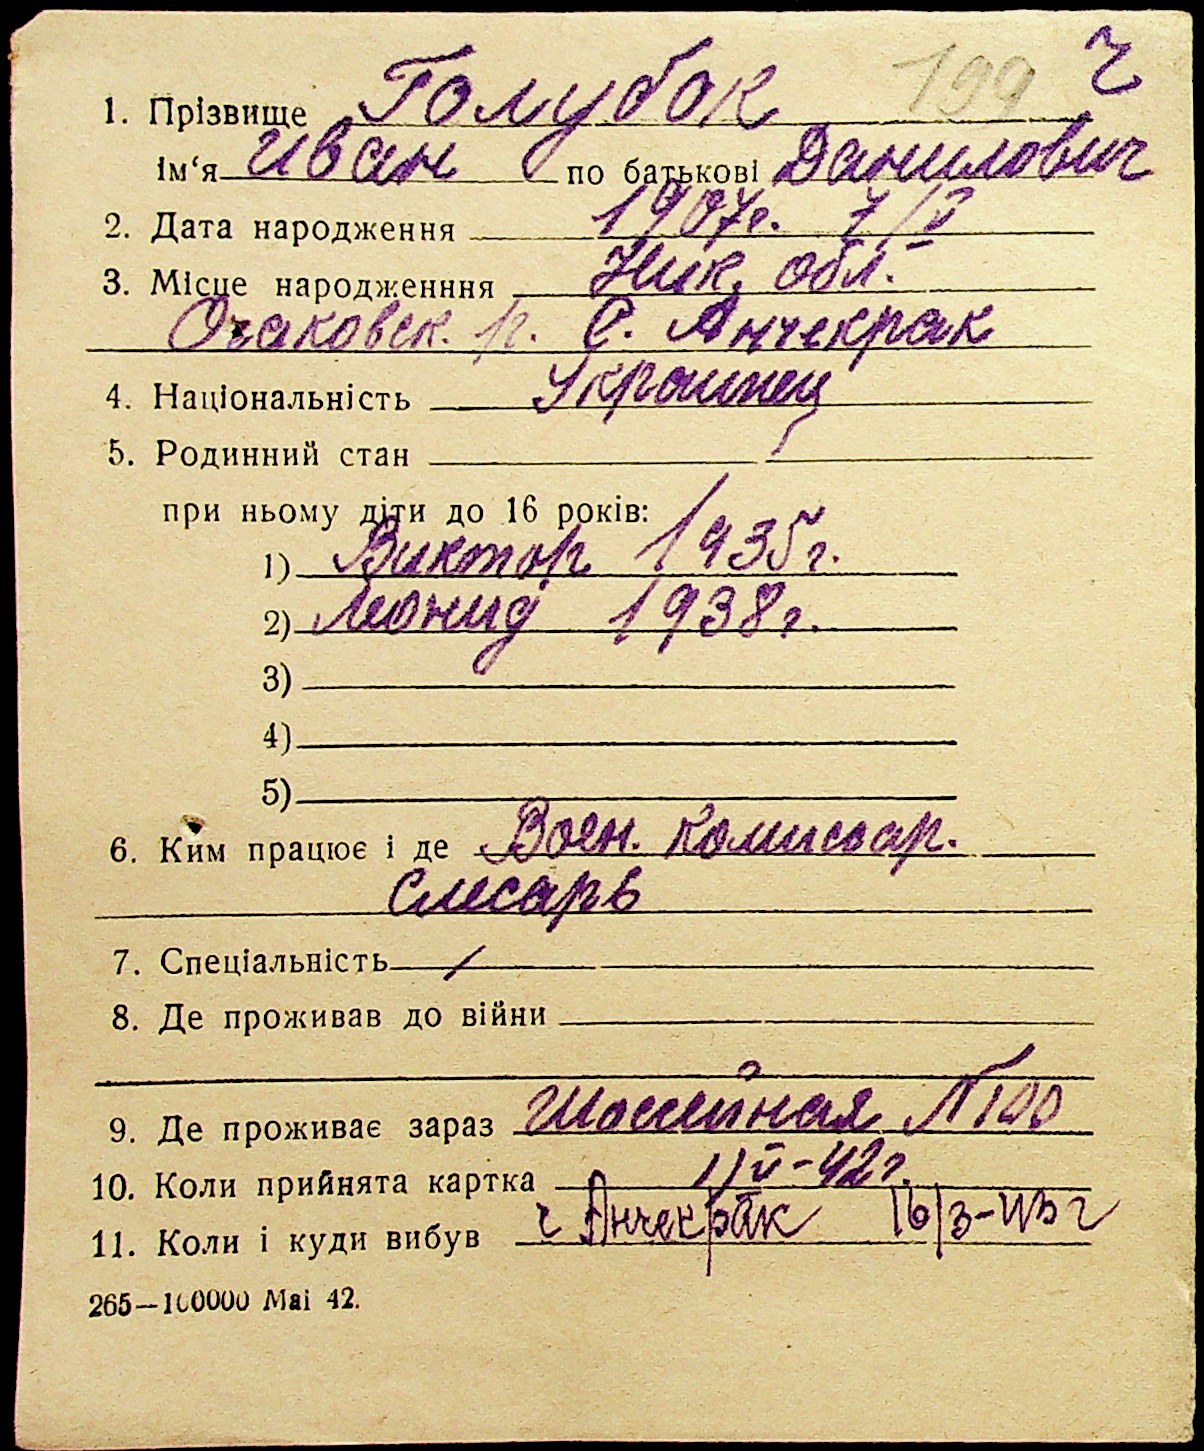 199 ч
1. Прізвище Голубок
ім‘я Иван по батькові Данилович
2. Дата народження 1907г. 7/V
3. Місце народженння Ник. обл.
Очаковск. р. С. Анчекрак
4. Національність Украинец
5. Родинний стан
при ньому діти до 16 років:
1) Виктор 1935г.
2) Леонид 1938г.
3)
4)
5)
6. Ким працює і де Воен. комисар.
Слесарь
7. Спеціальність /
8. Де проживав до війни
9. Де проживає зараз Шоссейная N100
10. Коли прийнята картка V-42г.
11. Коли і куди вибув Анчекрак 16/3-43г
265—100000 Маі 42.